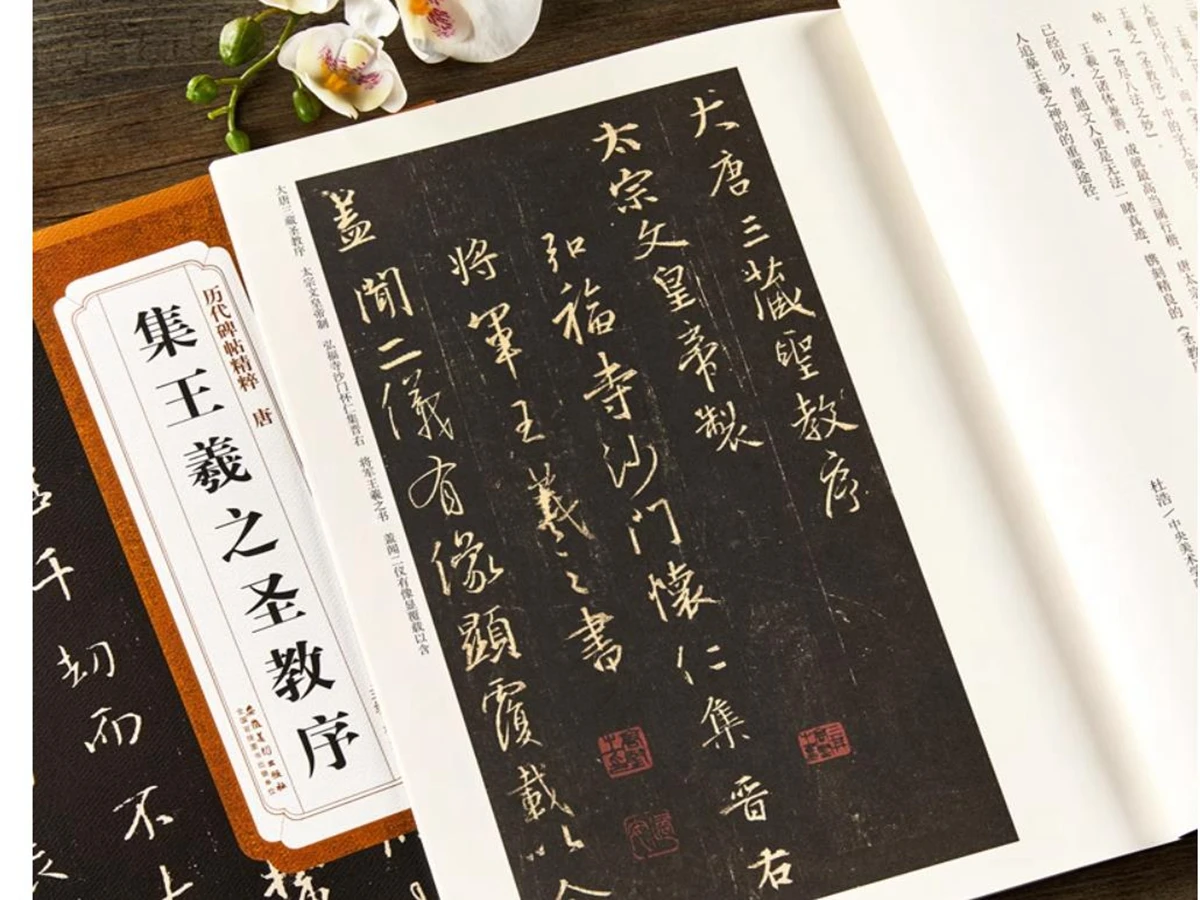 大都只字片言，而《
王羲之《圣教序》中的字大
帖：『各尽八法之妙』。
王羲之诸体兼善，成就最高当属行楷，唐太宗
已经很少，普通文人更是无法一睹真迹，镌刻精良的《圣教序
人追摹王羲之神韵的重要途径。
杜浩／中央美术学
大唐三藏聖教序
太宗文皇帝製
弘福寺沙门懷仁集晋右
将軍王羲之書
盖闻二儀有像顯覆載以含
大唐三藏圣教序 太宗文皇帝制 弘福寺沙门怀仁集晋右 将军王羲之书 盖闻二仪有像显覆载以含
历代碑帖精粹 唐
集王羲之圣教序
安徽美术出版社
全国百佳图书出版单位
千劫而不